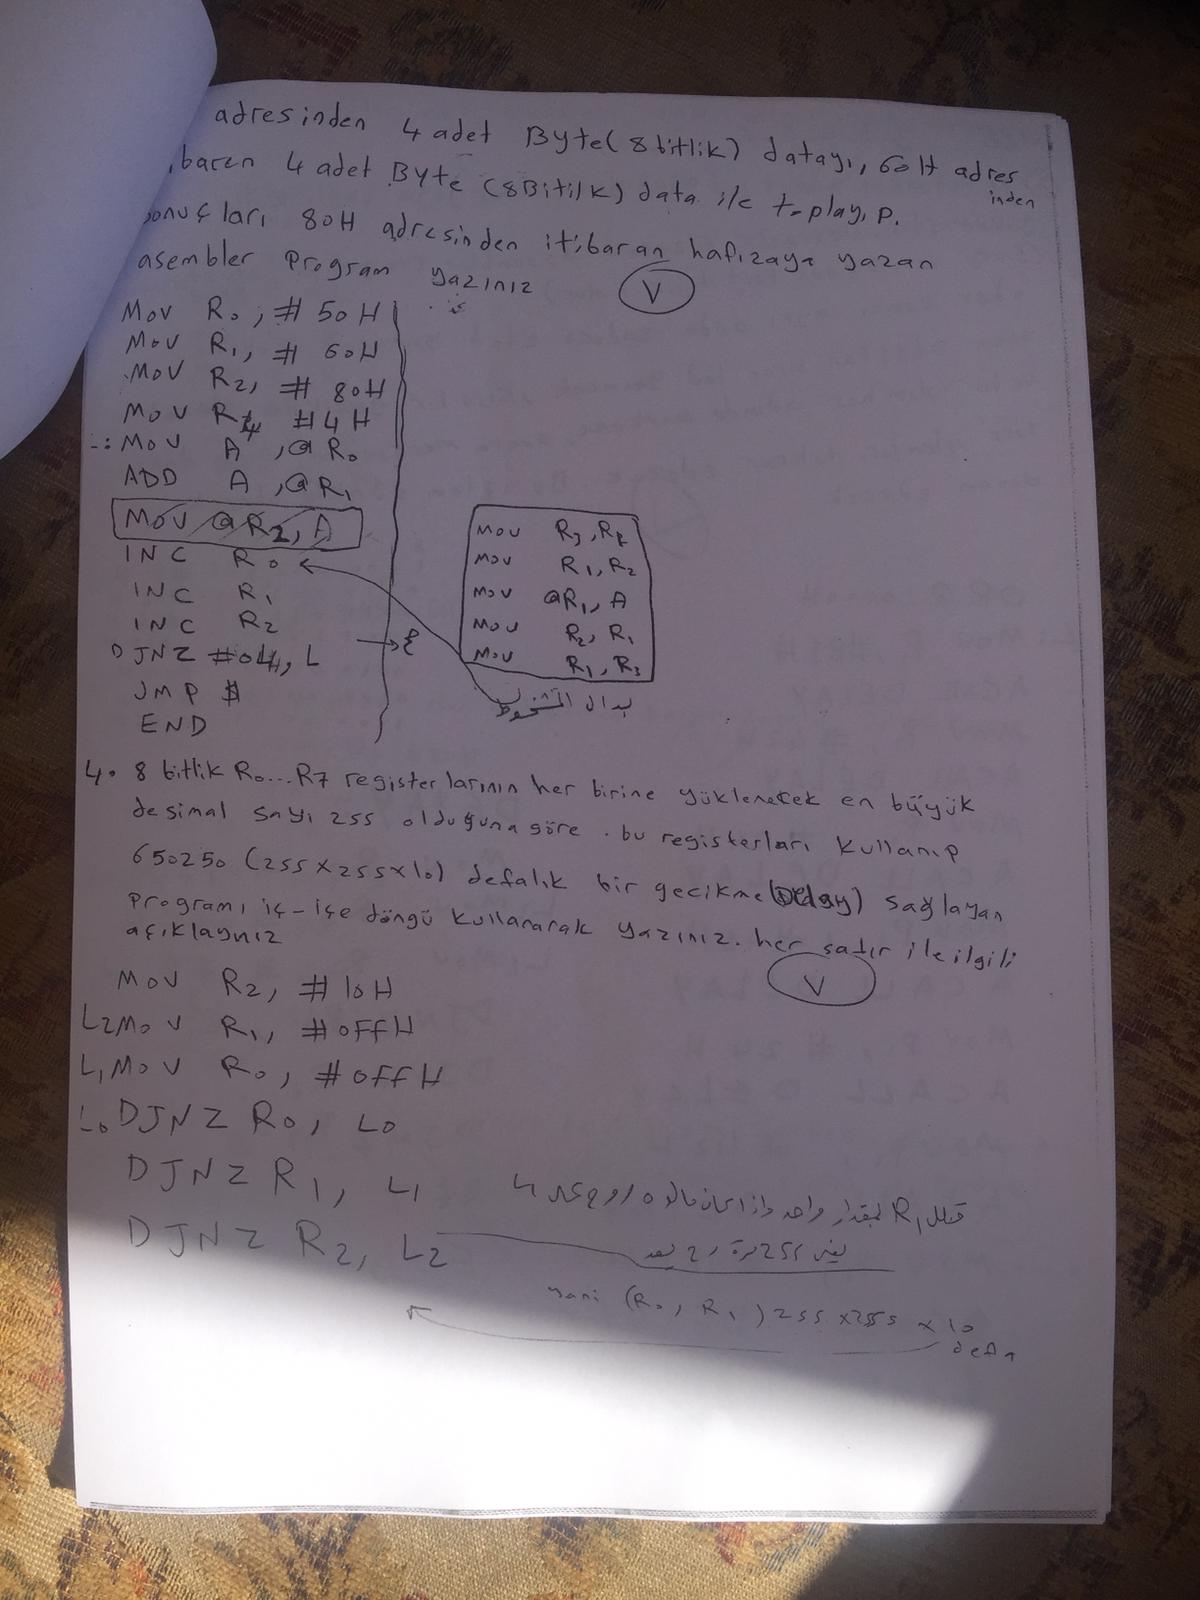 adresinden 4 adet Byte(8bitlik) datayı, 60H adres
inden
baren 4 adet Byte (8Bitilk) data ile toplayıp.
sonuçları 80H adresinden itibaran hafızaya yazan
asembler Program yazınız
V
MOV R0, #50H
MOV R1, #60H
MOV R2, #80H
MOV R4 #4H
MOV A, @R0
ADD A, @R1
MOV @R2, A
INC R0
INC R1
INC R2
DJNZ #04H, L
JMP $
END
MOV R1, R2
MOV @R1, A
MOV R2, R1
MOV R1, R3
بدال المشخوط
4. 8 bitlik R0...R7 registerlarının her birine yüklenecek en büyük
desimal sayı 255 olduğuna göre. bu registerları kullanıp
650250 (255x255x10) defalık bir gecikme (Delay) sağlayan
Programı iç-içe döngü kullanarak yazınız. her satır ile ilgili
açıklayınız
V
MOV R2, #10H
L2MOV R1, #0FFH
L1MOV R0, #0FFH
L0DJNZ R0, L0
DJNZ R1, L1
DJNZ R2, L2
R1 بمقدار واحد واذا
255 مرة
yani (R0, R1) 255 x255 x 10
defa